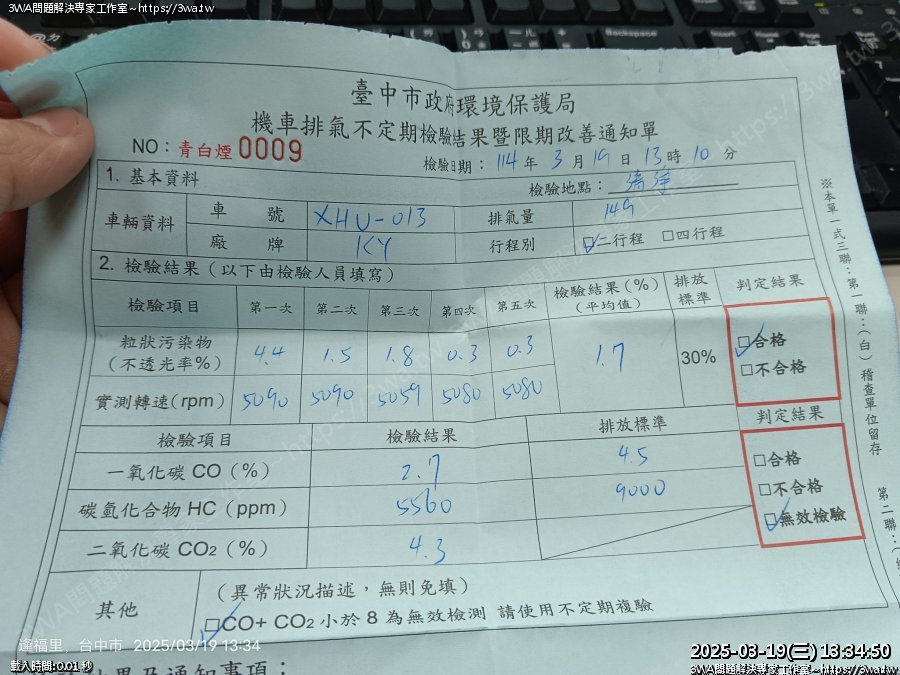 3WA問題解決專家工作室~https://3wa.tw
3WA問題解決專家工作室~https://3wa.tw
臺中市政府環境保護局
機車排氣不定期檢驗結果暨限期改善通知單
NO：青白煙0009
檢驗日期：114年3月19日13時10分
1. 基本資料
檢驗地點：
車輛資料 車號 XHU-013 排氣量 149
廠牌 KY 行程別 ☑二行程 □四行程
2. 檢驗結果（以下由檢驗人員填寫）
檢驗項目 第一次 第二次 第三次 第四次 第五次 檢驗結果(%)(平均值) 排放標準 判定結果
粒狀污染物(不透光率%) 4.4 1.5 1.8 0.3 0.3 1.7 30% ☑合格
□不合格
實測轉速(rpm) 5090 5090 5059 5080 5080
檢驗項目 檢驗結果 排放標準 判定結果
一氧化碳 CO（%） 2.7 4.5 □合格
碳氫化合物 HC（ppm） 5560 9000 □不合格
二氧化碳 CO2（%） 4.3 ☑無效檢驗
其他 （異常狀況描述，無則免填）
☑CO+ CO2 小於 8 為無效檢測 請使用不定期複驗
※本單一式三聯：第一聯：(白)稽查單位留存
第二聯：(
逢福里，台中市 2025/03/19 13:34
及通知事項：
載入時間:0.01 秒
2025-03-19(三) 13:34:50
3WA問題解決專家工作室~https://3wa.tw